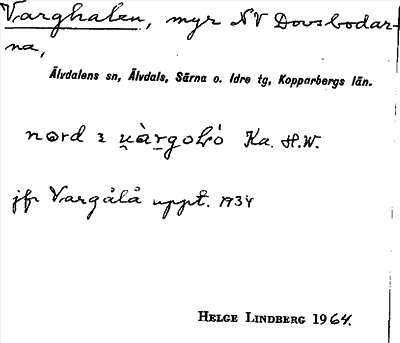 Varghalen, myr NV Dovsbodar-
na,
Älvdalens sn, Älvdals, Särna o. Idre tg, Kopparbergs län.
nord Ka. H.W.
jfr Vargålå uppt. 1934
HELGE LINDBERG 1964.